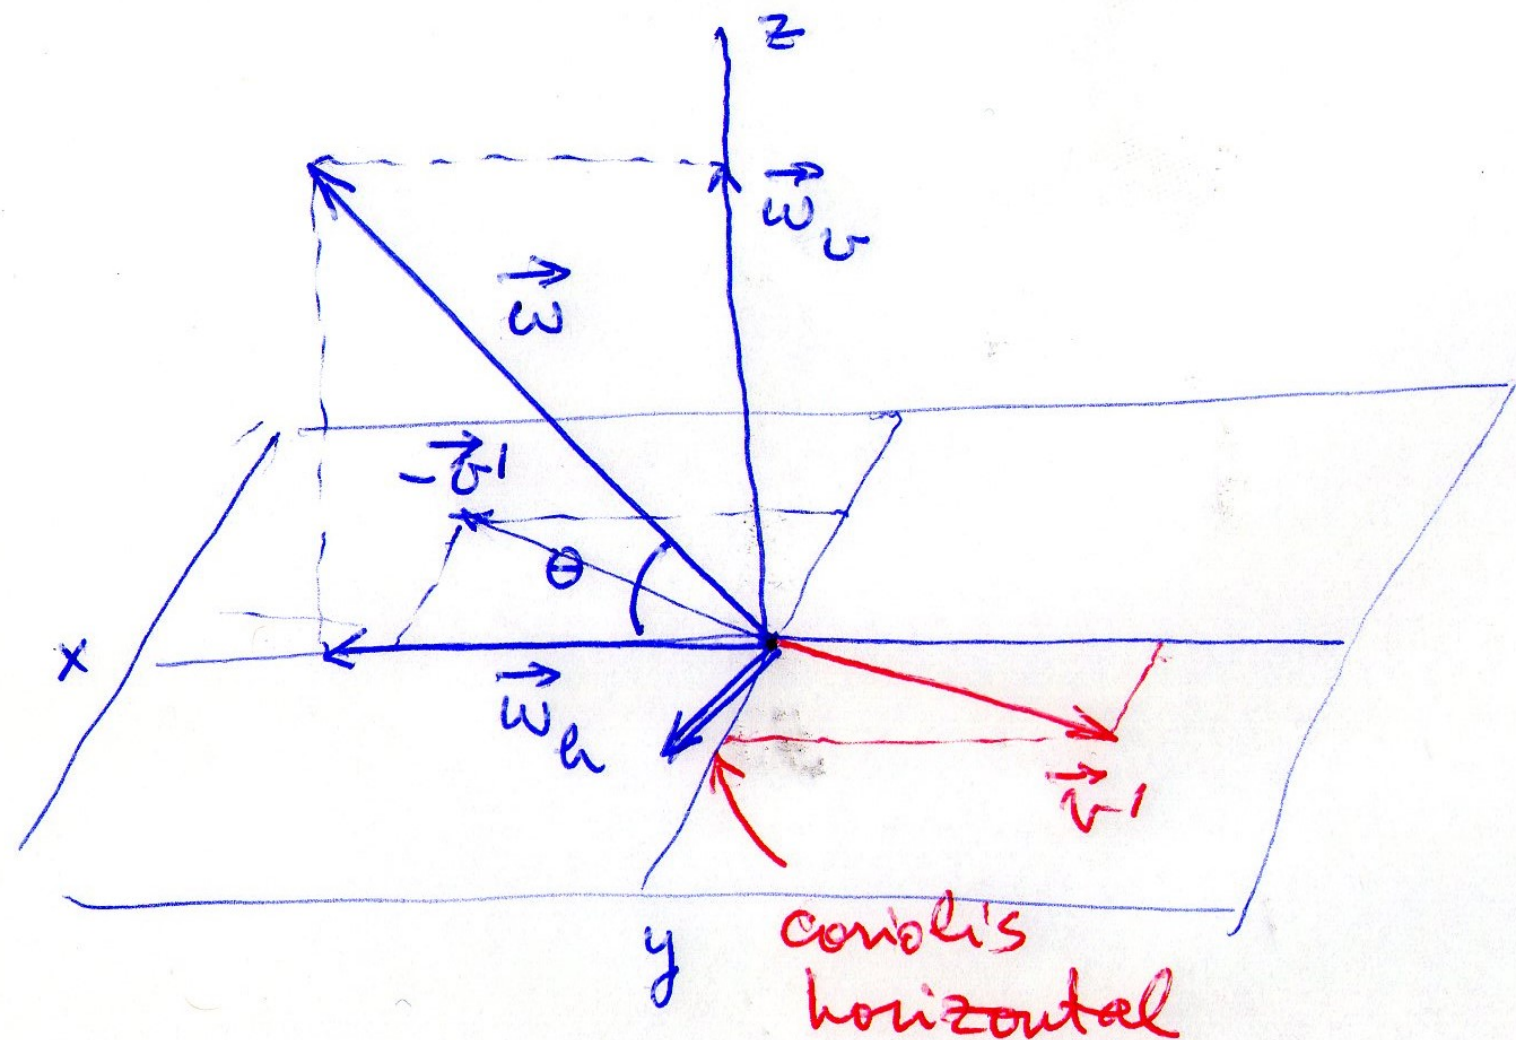 z
→ω v
→ω
-→v'
θ
x
→ω h
→v'
y
coriolis
horizontal